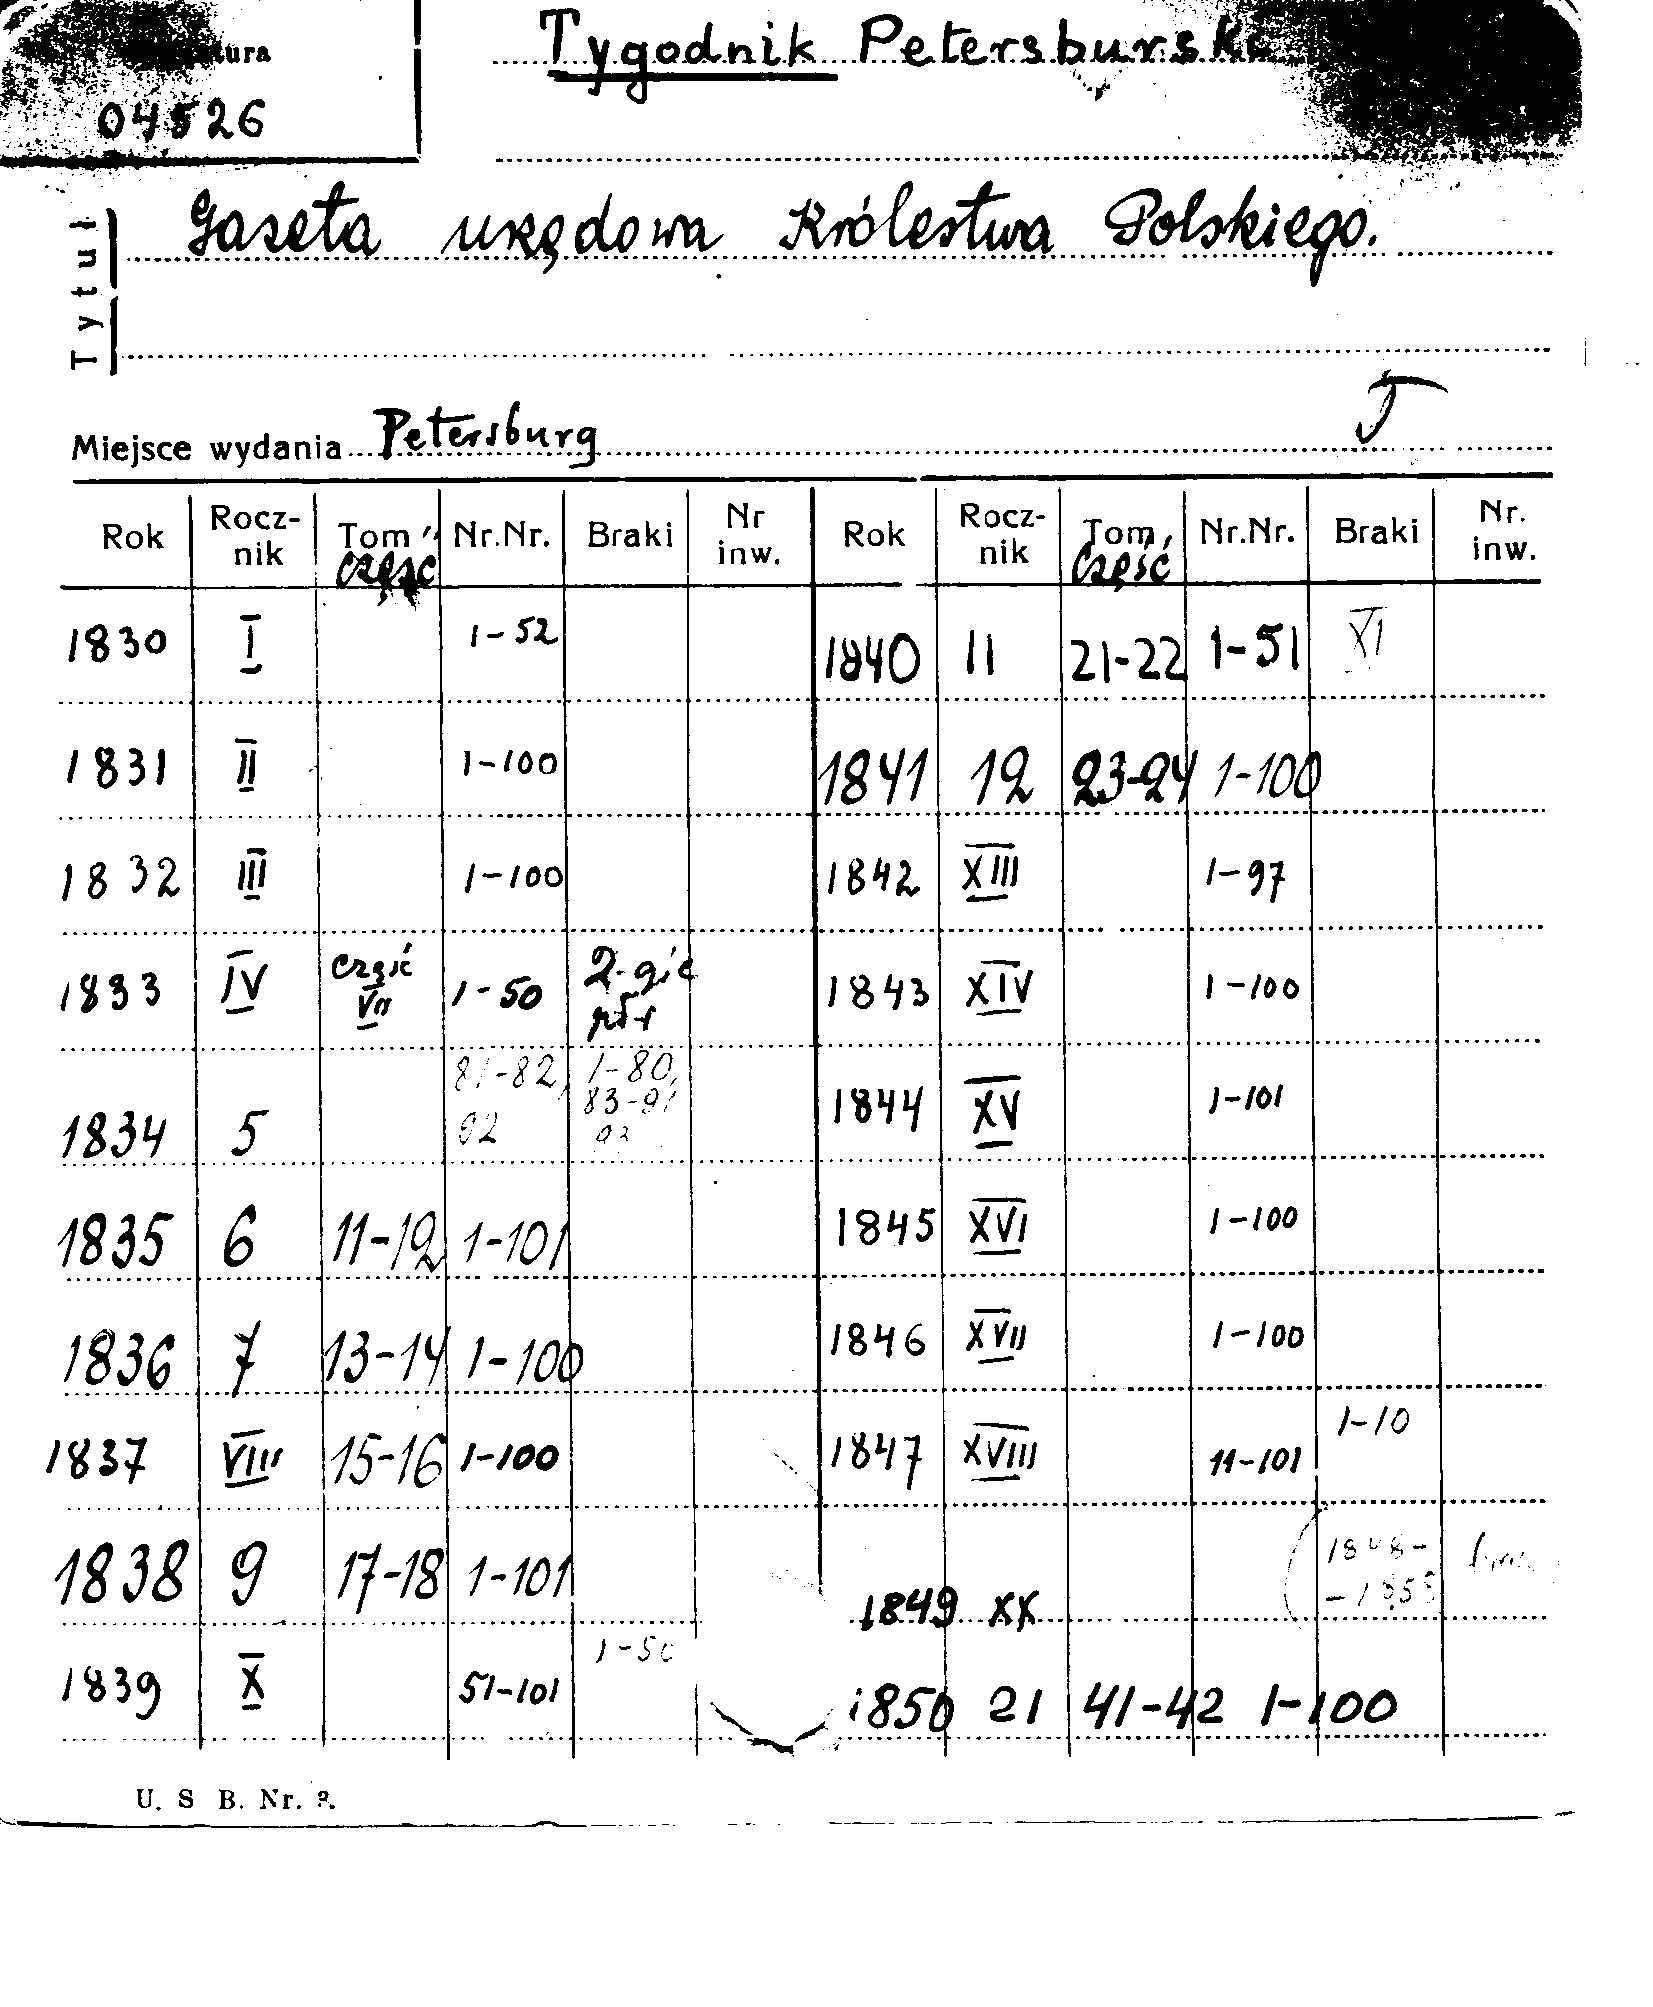 Tygodnik Petersburski
04526
Tytuł
Gazeta urzędowa Królestwa Polskiego.
Miejsce wydania Petersburg
Rok Rocznik Tom, część Nr.Nr. Braki Nr inw. Rok Rocznik Tom, część Nr.Nr. Braki Nr. inw.
1830 I 1-52 1840 11 21-22 1-51 XI
1831 II 1-100 1841 12 23-24 1-100
1832 III 1-100 1842 XIII 1-97
1833 IV część VII 1-50 2-gie półr 1843 XIV 1-100
1834 5 81-82, 92 1-80, 83-91 93 1844 XV 1-101
1835 6 11-12 1-101 1845 XVI 1-100
1836 7 13-14 1-100 1846 XVII 1-100
1837 VIII 15-16 1-100 1847 XVIII 11-101 1-10
1838 9 17-18 1-101 1849 XX
1839 X 51-101 1-50 1850 21 41-42 1-100
U. S B. Nr.